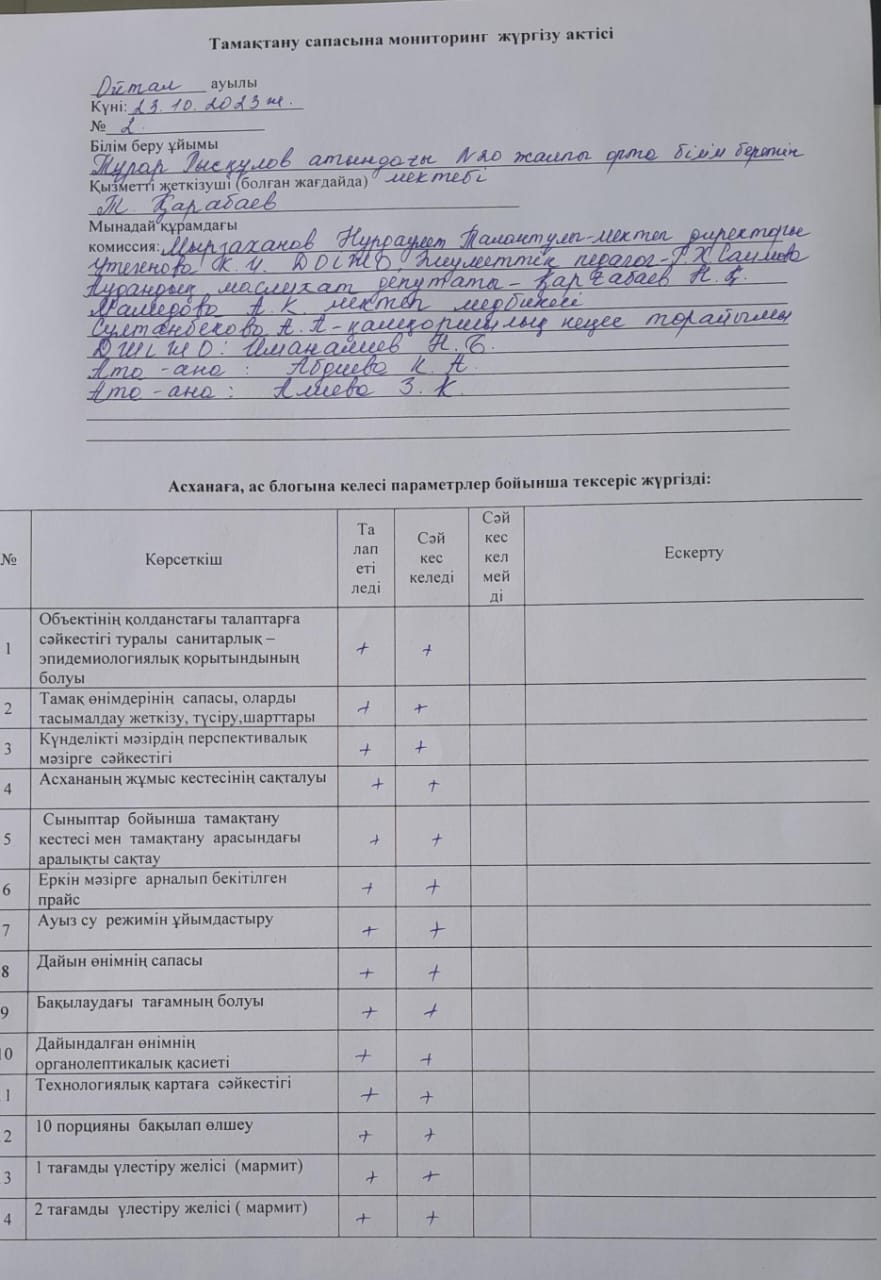 Тамақтану сапасына мониторинг жүргізу актісі
Ойтал ауылы
Күні: 23.10.2023ж.
№ 2
Білім беру ұйымы
Тұрар Рысқулов атындағы №20 жалпы орта білім беретін
Қызметті жеткізуші (болған жағдайда) мектебі
Т. Қарабаев
Мынадай құрамдағы
комиссия: Мырзаханов Нурдаулет Талантулы-мектеп директоры
Утегенова К. У. Әлеуметтік педагог- Саимова
Аудандық маслихат депутаты - Қарғабаев Н. Қ.
Мамедова А. К мектеп медбикесі
Султанбекова А. А - қамқоршылық кеңес төрайымы
Иманалиев Н. Б.
Ата - ана : Абдиева К. А.
Ата - ана : Алиева З. К.
Асханаға, ас блогына келесі параметрлер бойынша тексеріс жүргізді:
№ Көрсеткіш Та лап еті леді Сәй кес келеді Сәй кес кел мей ді Ескерту
1 Объектінің қолданстағы талаптарға
сәйкестігі туралы санитарлық –
эпидемиологиялық қорытындының + +
болуы
2 Тамақ өнімдерінің сапасы, оларды + +
тасымалдау жеткізу, түсіру,шарттары
3 Күнделікті мәзірдің перспективалық + +
мәзірге сәйкестігі
4 Асхананың жұмыс кестесінің сақталуы + +
5 Сыныптар бойынша тамақтану
кестесі мен тамақтану арасындағы + +
аралықты сақтау
6 Еркін мәзірге арналып бекітілген + +
прайс
7 Ауыз су режимін ұйымдастыру + +
8 Дайын өнімнің сапасы + +
9 Бақылаудағы тағамның болуы + +
10 Дайындалған өнімнің + +
органолептикалық қасиеті
1 Технологиялық картаға сәйкестігі + +
2 10 порцияны бақылап өлшеу + +
3 1 тағамды үлестіру желісі (мармит) + +
4 2 тағамды үлестіру желісі ( мармит) + +